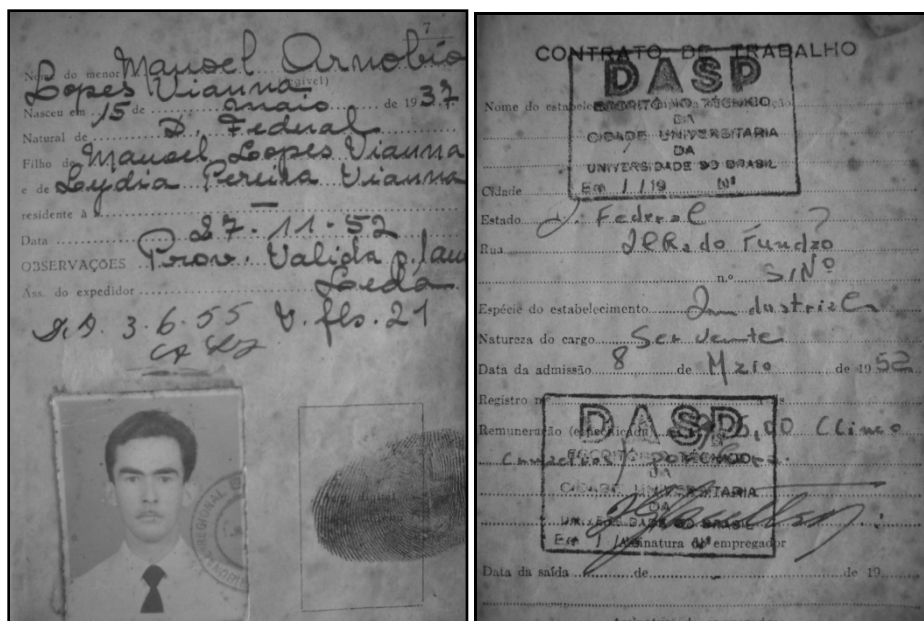 7
Nome do menor Manoel Arnobio
Lopes Vianna
(legível)
Nasceu em 15 de maio de 1937
Natural de D. Federal
Filho de Manoel Lopes Vianna
e de Lydia Pereira Vianna
residente à
Data 27-11-52
OBSERVAÇÕES Prov. Valida p.
Ass. do expedidor Leda
3.6.55 V. fls. 21
CONTRATO DE TRABALHO
DASP
Nome do
ESCRITÓRIO TÉCNICO
DA
CIDADE UNIVERSITARIA
DA
UNIVERSIDADE DO BRASIL
Cidade
Em / /19 Nº
Estado D. Federal
Rua Ilha do Fundão
n.º S/Nº
Espécie do estabelecimento Industrial
Natureza do cargo Servente
Data da admissão 8 de Maio de 1952
Registro n.º
DASP
Remuneração (especificada) 5,00 (Cinco
Cruzeiros) por hora.
ESCRITÓRIO TÉCNICO
DA
CIDADE UNIVERSITARIA
DA
UNIVERSIDADE DO BRASIL
Em Nº
Assinatura do empregador
Data da saída de de 19